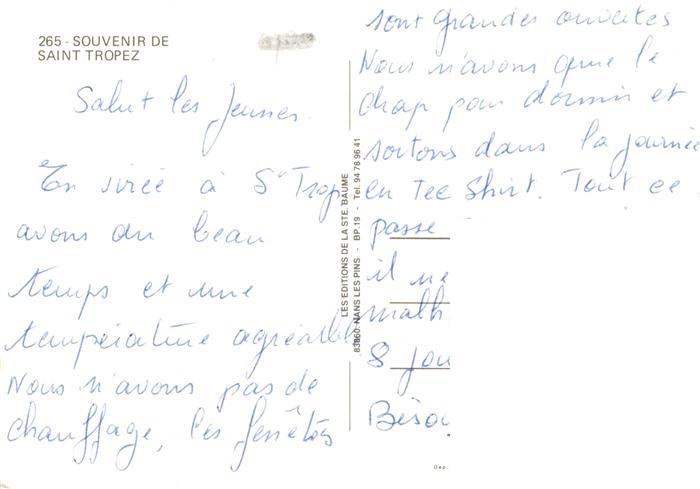 265 - SOUVENIR DE
SAINT TROPEZ
Salut les Jeunes.
En virée à St Trop
avons du beau
temps et une
température agréable
Nous n'avons pas de
chauffage, les fenêtres
LES EDITIONS DE LA STE. BAUME
83860. NANS LES PINS - BP.19 - Tel. 94 78 96 41
sont grandes ouvertes
Nous n'avons que le
drap pour dormir et
sortons dans la journée
en Tee Shirt. Tout ce
passe
il ne
malh
8 jou
Bisou
Dep.